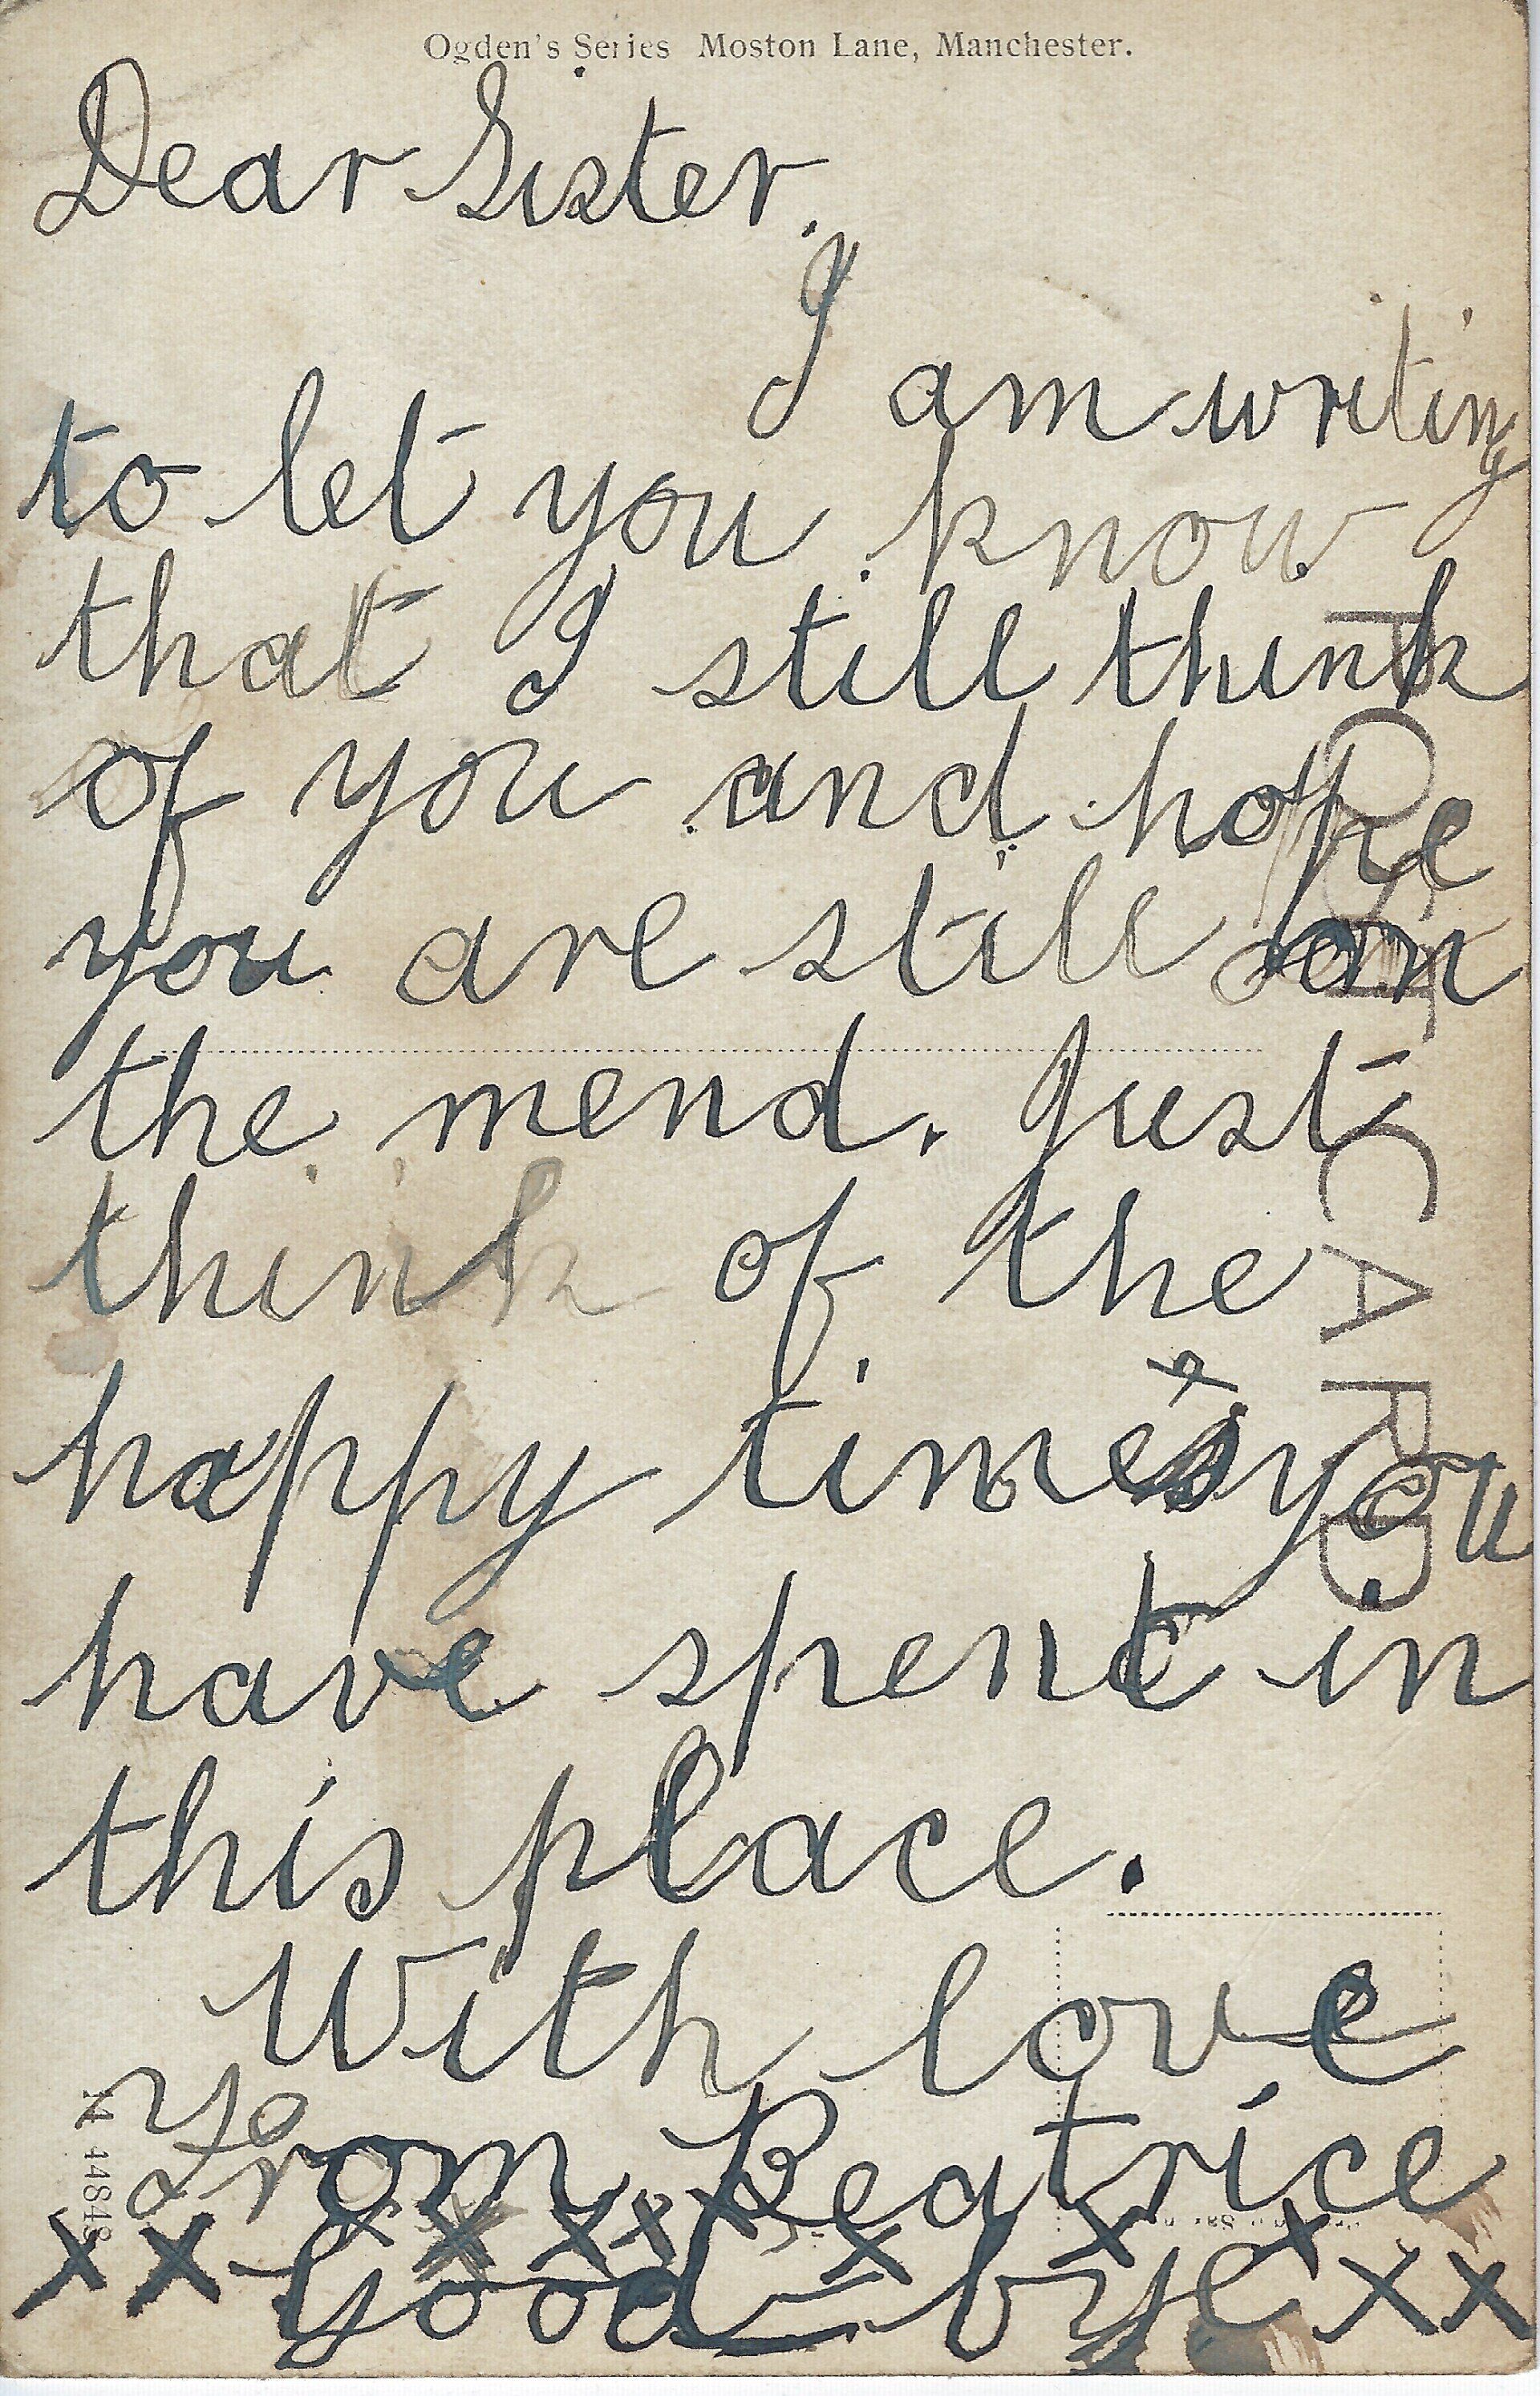 Ogden's Series Moston Lane, Manchester.
Dear Sister.
I am writing
to let you know
that I still think
of you and hope
you are still on
the mend. Just
think of the
happy times you
have spent in
this place.
With love
from Beatrice
x x x x x x x x x x
Good-bye x x
POST CARD